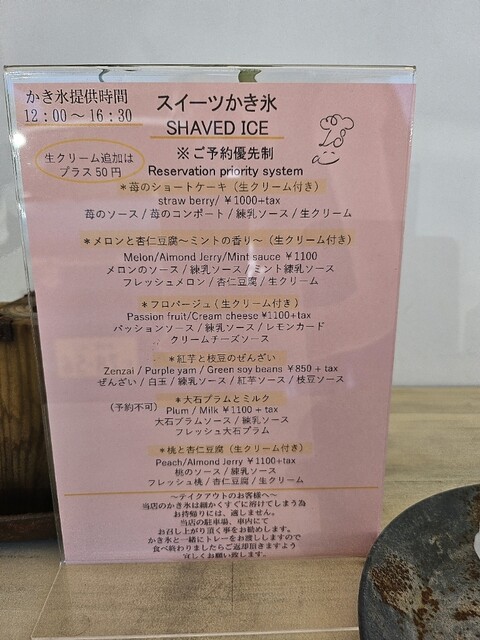 かき氷提供時間
12：00～16：30
スイーツかき氷
SHAVED ICE
生クリーム追加は
プラス50円
※ご予約優先制
Reservation priority system
＊苺のショートケーキ（生クリーム付き）
straw berry/ ¥1000+tax
苺のソース / 苺のコンポート / 練乳ソース / 生クリーム
＊メロンと杏仁豆腐～ミントの香り～（生クリーム付き）
Melon/Aimond Jerry/Mint sauce ¥1100
メロンのソース / 練乳ソース / ミント練乳ソース
フレッシュメロン / 杏仁豆腐 / 生クリーム
＊フロパージュ（生クリーム付き）
Passion fruit/Cream cheese ¥1100+tax
パッションソース / 練乳ソース / レモンカード
クリームチーズソース
＊紅芋と枝豆のぜんざい
Zenzai / Purple yam / Green soy beans ¥850 + tax
ぜんざい / 白玉 / 練乳ソース / 紅芋ソース / 枝豆ソース
＊大石プラムとミルク
（予約不可）
Plum / Milk ¥1100 + tax
大石プラムソース / 練乳ソース
フレッシュ大石プラム
＊桃と杏仁豆腐（生クリーム付き）
Peach/Almond Jerry ¥1100+tax
桃のソース / 練乳ソース
フレッシュ桃 / 杏仁豆腐 / 生クリーム
～テイクアウトのお客様へ～
当店のかき氷は細かくすぐに溶けてしまう為
お持帰りには、適しません。
当店の駐車場、車内にて
お召し上がり頂く事をお勧めします。
かき氷と一緒にトレーをお渡ししますので
食べ終わりましたらご返却頂きますよう
宜しくお願い致します。